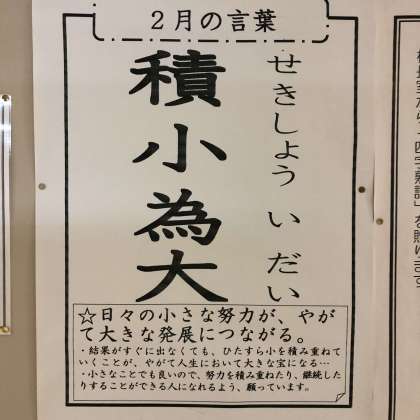 2月の言葉
積小為大
せきしょう い だい
☆日々の小さな努力が、やが
て大きな発展につながる。
・結果がすぐに出なくても、ひたすら小を積み重ねて
いくことが、やがて人生において大きな宝になる…
・小さなことでも良いので、努力を積み重ねたり、継続した
りすることができる人になれるよう、願っています。